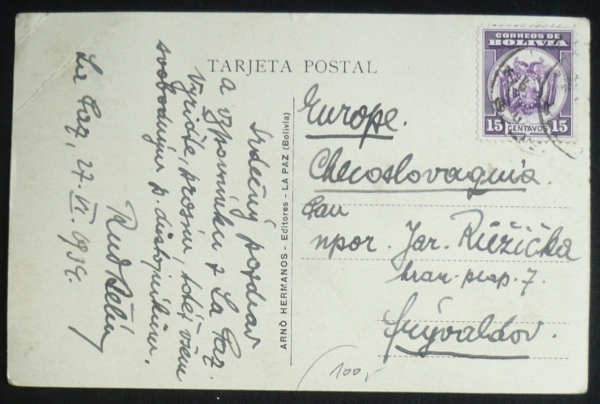 CORREOS DE
BOLIVIA
15 CENTAVOS 15
TARJETA POSTAL
ARNÓ HERMANOS - Editores - LA PAZ (Bolivia)
Srdečný pozdrav
a vzpomínku z La Paz.
Vyřiďte, prosím, totéž všem
svobodným p. důstojníkům.
Rud.
La Paz, 27. VI. 1934.
Europe.
Checoslovaquia.
Pan
npor. Jar. Růžička
hran. prap. 7.
Frývaldov.
100,-